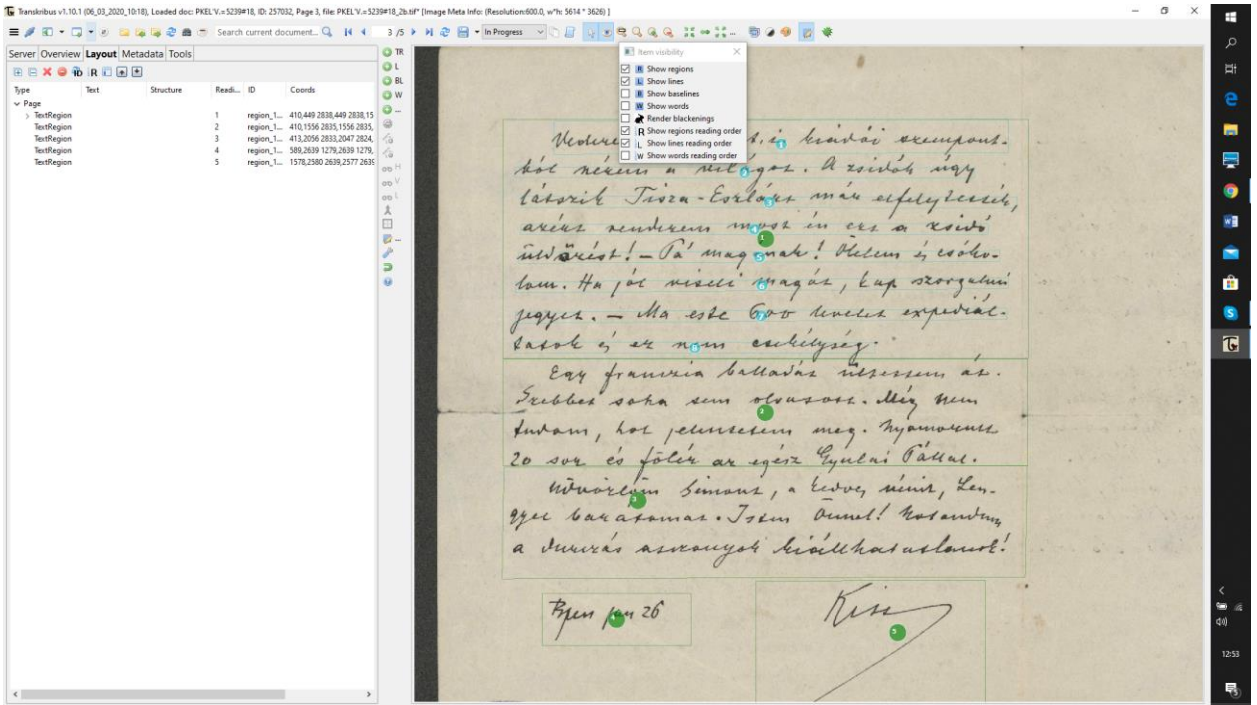 Transkribus v1.10.1 (06_03_2020_10:18), Loaded doc: PKEL'V.=5239#18, ID: 257032, Page 3, file: PKEL'V.=5239#18_2b.tif* [Image Meta Info: (Resolution:600.0, w*h: 5614 * 3626) ]
Search current document... 3 /5 In Progress
Server Overview Layout Metadata Tools
Type Text Structure Readi... ID Coords
Page
TextRegion 1 region_1... 410,449 2838,449 2838,15
TextRegion 2 region_1... 410,1556 2835,1556 2835,
TextRegion 3 region_1... 413,2056 2833,2047 2824,
TextRegion 4 region_1... 589,2639 1279,2639 1279,
TextRegion 5 region_1... 1578,2580 2639,2577 2639
TR
L
BL
W
...
H
V
L
...
Item visibility
R Show regions
L Show lines
B Show baselines
W Show words
Render blackenings
R Show regions reading order
L Show lines reading order
W Show words reading order
és kiadói szempont-
ból nézem a világot. A zsidók úgy
látszik Tisza-Eszlárt már elfelejtették,
azért rendezem most én ezt a zsidó
üldözést! – Pá magának! Ölelem és csóko-
lom. Ha jól viseli magát, kap szorgalmi
jegyet. – Ma este 600 levelet expediál-
tatok és ez nem csekélység.
Egy franczia balladát ültettem át.
Szebbet soha sem olvasott. Még nem
tudom, hol jelentetem meg. Nyomorult
20 sor és fölér az egész Gyulai Pállal.
Üdvözlöm Simont, a kedves nénit, Len-
gyel barátomat. Isten Önnel!
a asszonyok kiállhatatlanok!
Bpest jan 26
Kiss
12:53